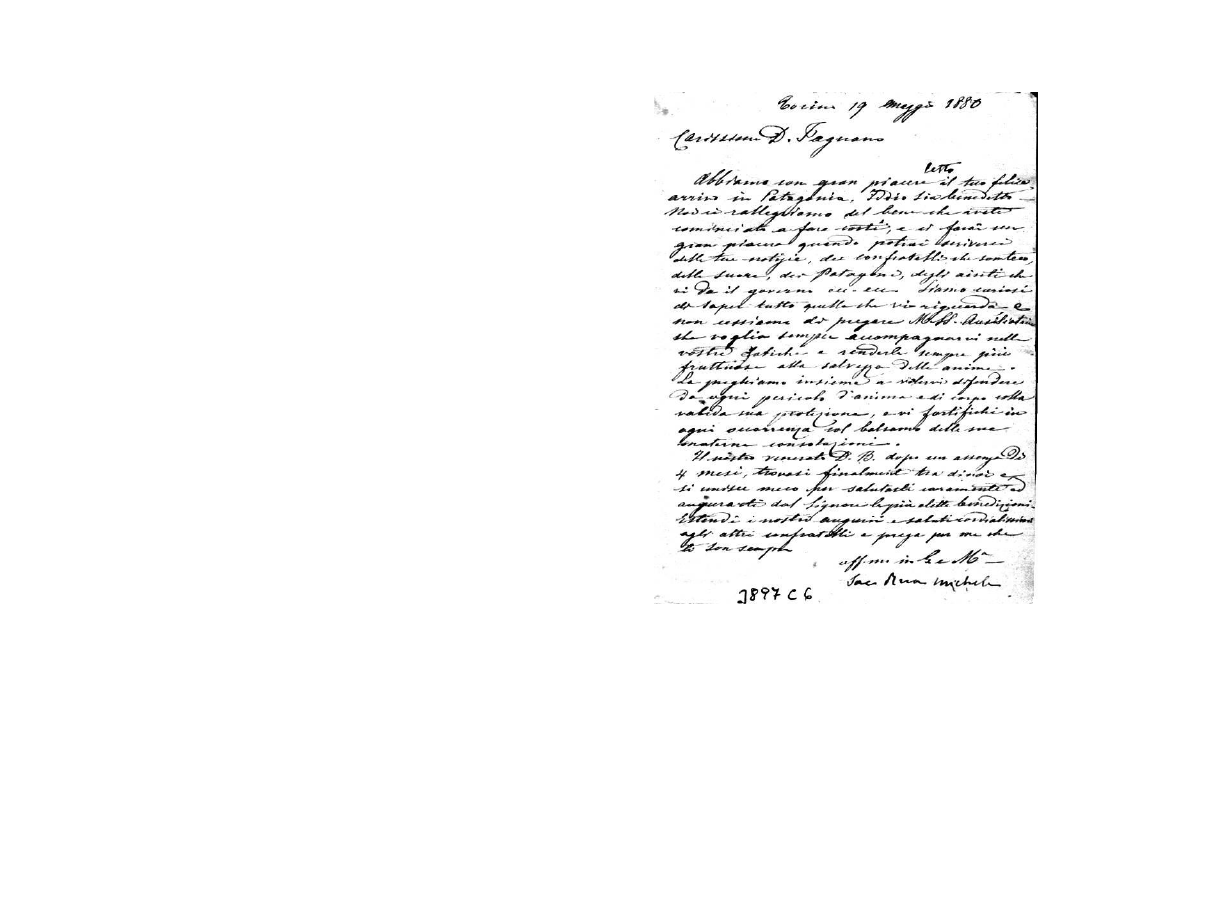 Torino 19 Maggio 1880
Carissimo D. Fagnano
letto
Abbiamo con gran piacere il tuo felice
arrivo in Patagonia. Iddio sia benedetto
Noi ci rallegriamo del bene che avete
cominciato a fare costì, e ci farai un
gran piacere quando potrai scriverci
delle tue notizie, dei confratelli che son teco,
delle suore, dei Patagoni, degli aiuti che
vi dà il governo ecc. ecc. Siamo curiosi
di saper tutto quello che vi riguarda e
non cessiamo di pregare M. SS. Ausiliatrice
che voglia sempre accompagnarvi nelle
vostre fatiche e renderle sempre più
fruttuose alla salvezza delle anime.
La preghiamo insieme a volervi difendere
da ogni pericolo d'anima e di corpo colla
valida sua protezione, e vi fortifichi in
ogni occorrenza col balsamo delle sue
materne consolazioni.
Il nostro venerato D. B. dopo un assenza di
4 mesi, trovasi finalment tra di noi e
si unisce meco per salutarti caramente ed
augurarti dal Signore le più elette benedizioni.
Estendi i nostri auguri e saluti cordialissimi
agli altri confratelli e prega per me che
ti son sempre
aff.mo in G. e M.ª
Sac. Rua Michele
J897 C6